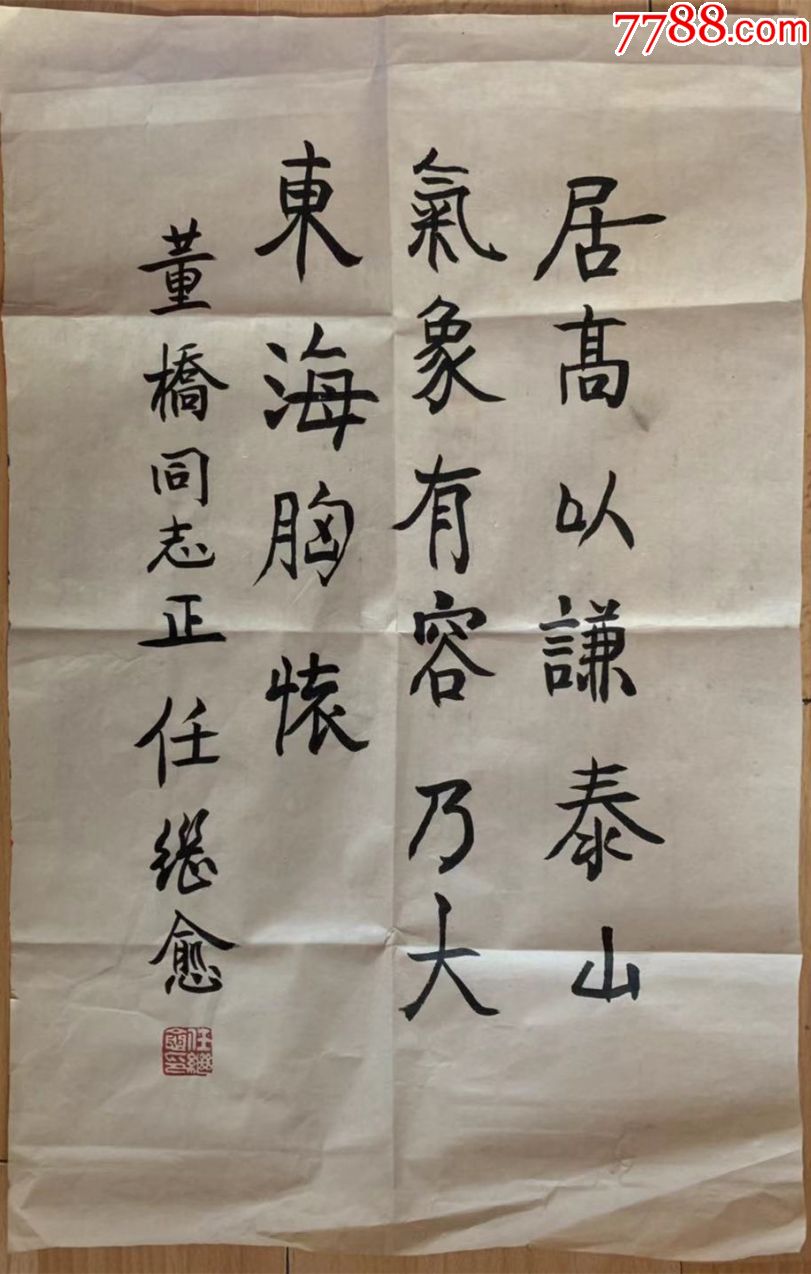 7788.com
居高以謙泰山
氣象有容乃大
東海胸懷
董橋同志正 任继愈
任繼愈印